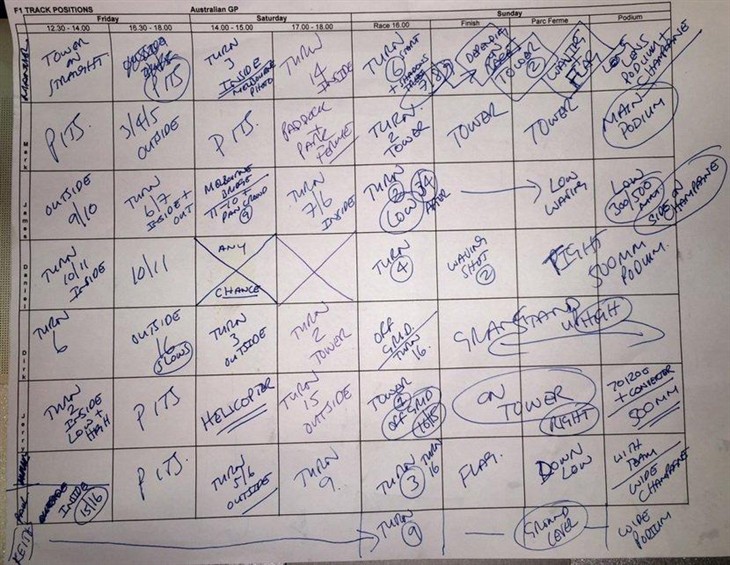 F1 TRACK POSITIONS Australian GP
Friday Saturday Sunday
12.30 - 14.00 16.30 - 18.00 14.00 - 15.00 17.00 - 18.00 Race 16.00 Finish Parc Ferme Podium
TOWER
ON
STRAIGHT
OUTSIDE
PITS
TURN
3
INSIDE
MELBOURNE
TURN
4
INSIDE
TURN
6
START
7/8/9
DEPENDING
ON
TOWER
2
WAVING
FLAG
LENS
PODIUM +
CHAMPAGNE
Mark
PITS.
3/4/5
OUTSIDE
PITS.
PADDOCK
PARC
FERME
TURN
2
TOWER
TOWER
TOWER
MAIN
PODIUM
James
OUTSIDE
9/10
TURN
6/7
INSIDE +
OUT
MELBOURNE
BRIDGE
PAN CROWD
9
TURN
7/6
INSIDE
TURN
2
LOW 3/4
AFTER
LOW
WAVING
LOW
300/500
SIDE ON
CHAMPAGNE
Daniel
TURN
10/11
INSIDE
10/11
ANY
CHANCE
TURN
4
WAVING
SHOT
2
RIGHT
500MM
PODIUM.
Dirk
TURN
6
OUTSIDE
16
SLOWS
TURN
3
OUTSIDE
TURN
2
TOWER
OFF
GRID
TURN
16.
GRANDSTAND
UP HIGH
Jerry
TURN
2
INSIDE
LOW +
HIGH
PITS
HELICOPTER
TURN
15
OUTSIDE
TOWER
1
OFF GRID
ON
TOWER
RIGHT
70/200
+ CONVERTER
500MM
INSIDE
15/16
PITS.
TURN
5/6
OUTSIDE
TURN
9.
TURN
3
TURN
16
FLAG.
DOWN
LOW
WITH
TEAM
WIDE
CHAMPAGNE
KEITH
TURN
9
GROUND
LEVEL
WIDE
PODIUM